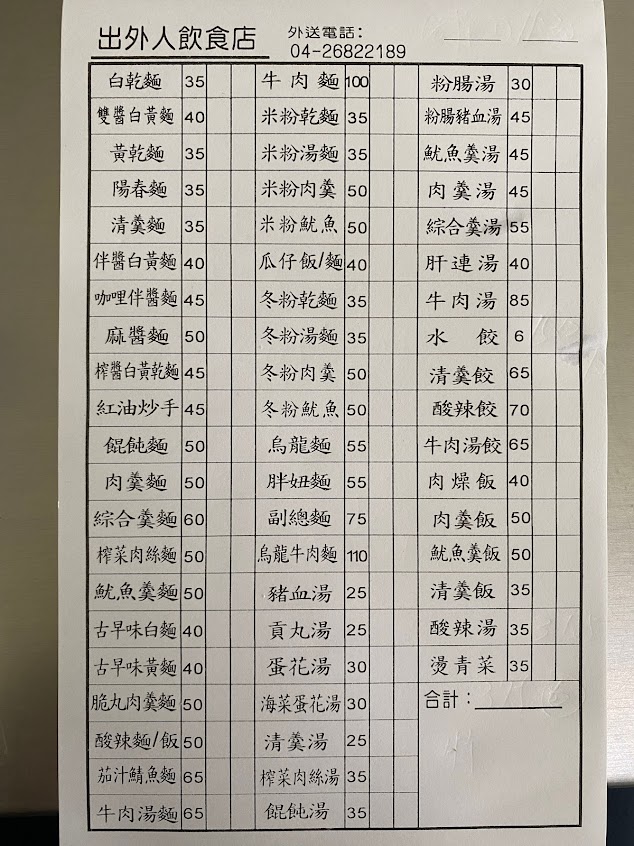 出外人飲食店
外送電話：
04-26822189
白乾麵 35
雙醬白黃麵 40
黃乾麵 35
陽春麵 35
清羹麵 35
伴醬白黃麵 40
咖哩伴醬麵 45
麻醬麵 50
榨醬白黃乾麵 45
紅油炒手 45
餛飩麵 50
肉羹麵 50
綜合羹麵 60
榨菜肉絲麵 50
魷魚羹麵 50
古早味白麵 40
古早味黃麵 40
脆丸肉羹麵 50
酸辣麵/飯 50
茄汁鯖魚麵 65
牛肉湯麵 65
牛肉麵 100
米粉乾麵 35
米粉湯麵 35
米粉肉羹 50
米粉魷魚 50
瓜仔飯/麵 40
冬粉乾麵 35
冬粉湯麵 35
冬粉肉羹 50
冬粉魷魚 50
烏龍麵 55
胖妞麵 55
副總麵 75
烏龍牛肉麵 110
豬血湯 25
貢丸湯 25
蛋花湯 30
海菜蛋花湯 30
清羹湯 25
榨菜肉絲湯 35
餛飩湯 35
粉腸湯 30
粉腸豬血湯 45
魷魚羹湯 45
肉羹湯 45
綜合羹湯 55
肝連湯 40
牛肉湯 85
水餃 6
清羹餃 65
酸辣餃 70
牛肉湯餃 65
肉燥飯 40
肉羹飯 50
魷魚羹飯 50
清羹飯 35
酸辣湯 35
燙青菜 35
合計：